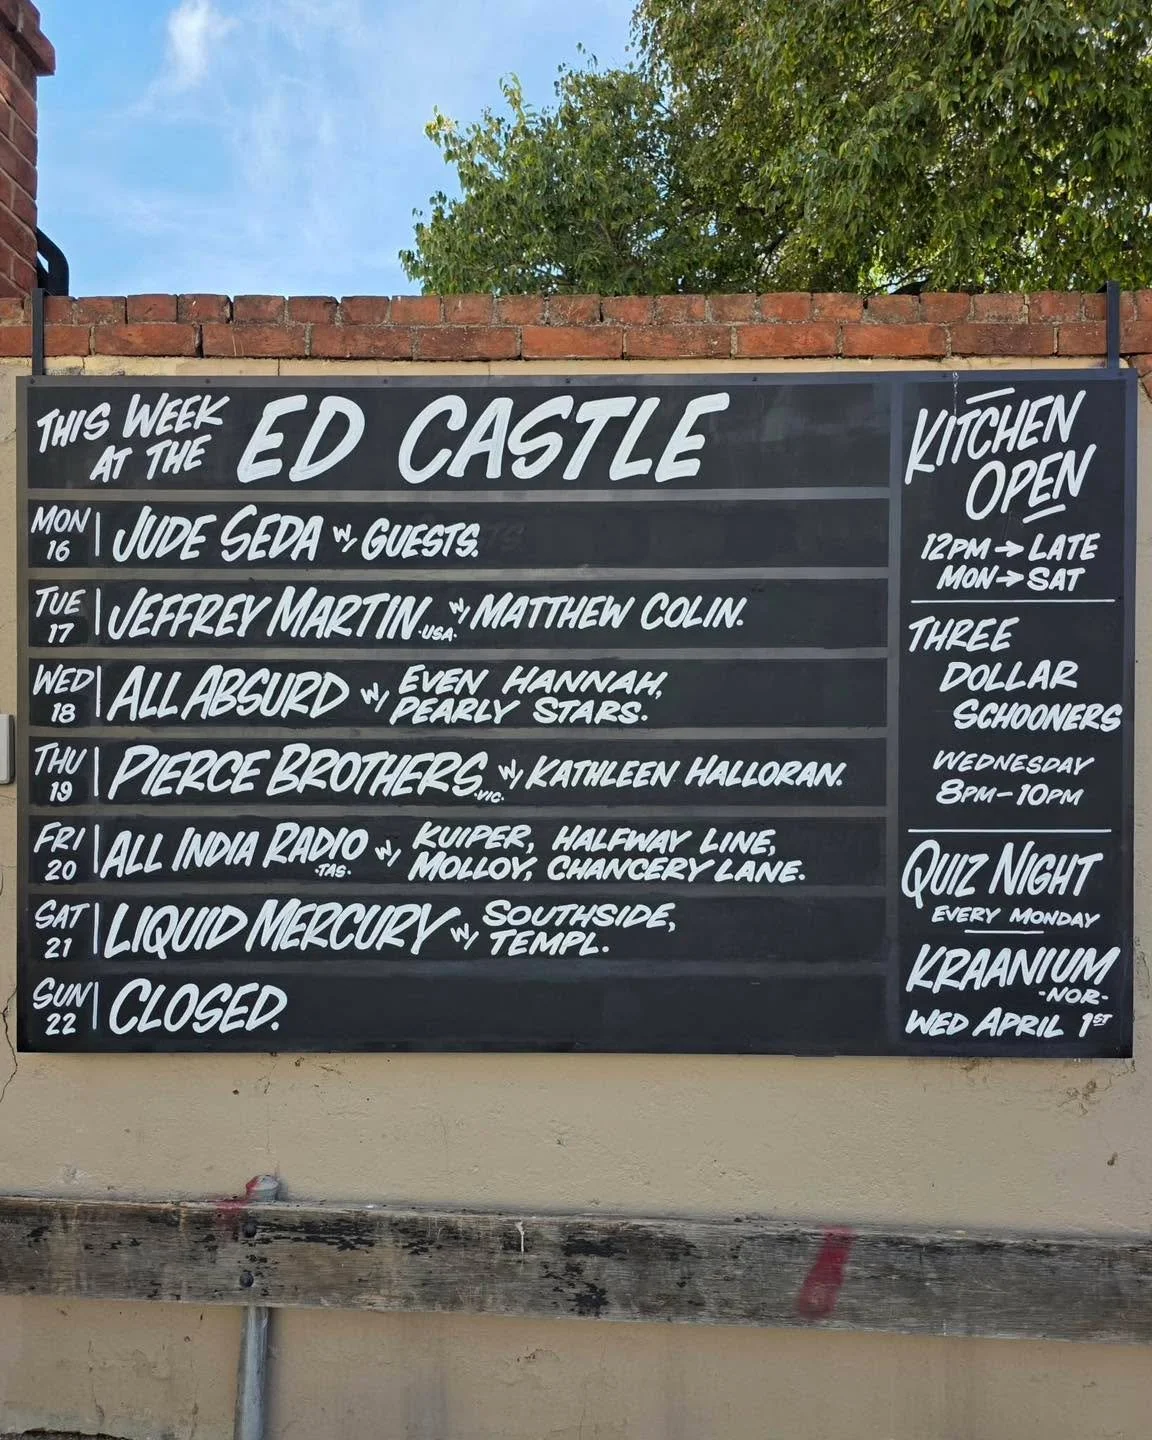 THIS WEEK
AT THE
ED CASTLE
MON
16
JUDE SEDA W/ GUESTS.
TUE
17
JEFFREY MARTIN ·USA· W/ MATTHEW COLIN.
WED
18
ALL ABSURD W/ EVEN HANNAH,
PEARLY STARS.
THU
19
PIERCE BROTHERS ·VIC· W/ KATHLEEN HALLORAN.
FRI
20
ALL INDIA RADIO ·TAS· W/ KUIPER, HALFWAY LINE,
MOLLOY, CHANCERY LANE.
SAT
21
LIQUID MERCURY W/ SOUTHSIDE,
TEMPL.
SUN
22
CLOSED.
KITCHEN
OPEN
12PM → LATE
MON → SAT
THREE
DOLLAR
SCHOONERS
WEDNESDAY
8PM-10PM
QUIZ NIGHT
EVERY MONDAY
KRAANIUM
-NOR-
WED APRIL 1ST